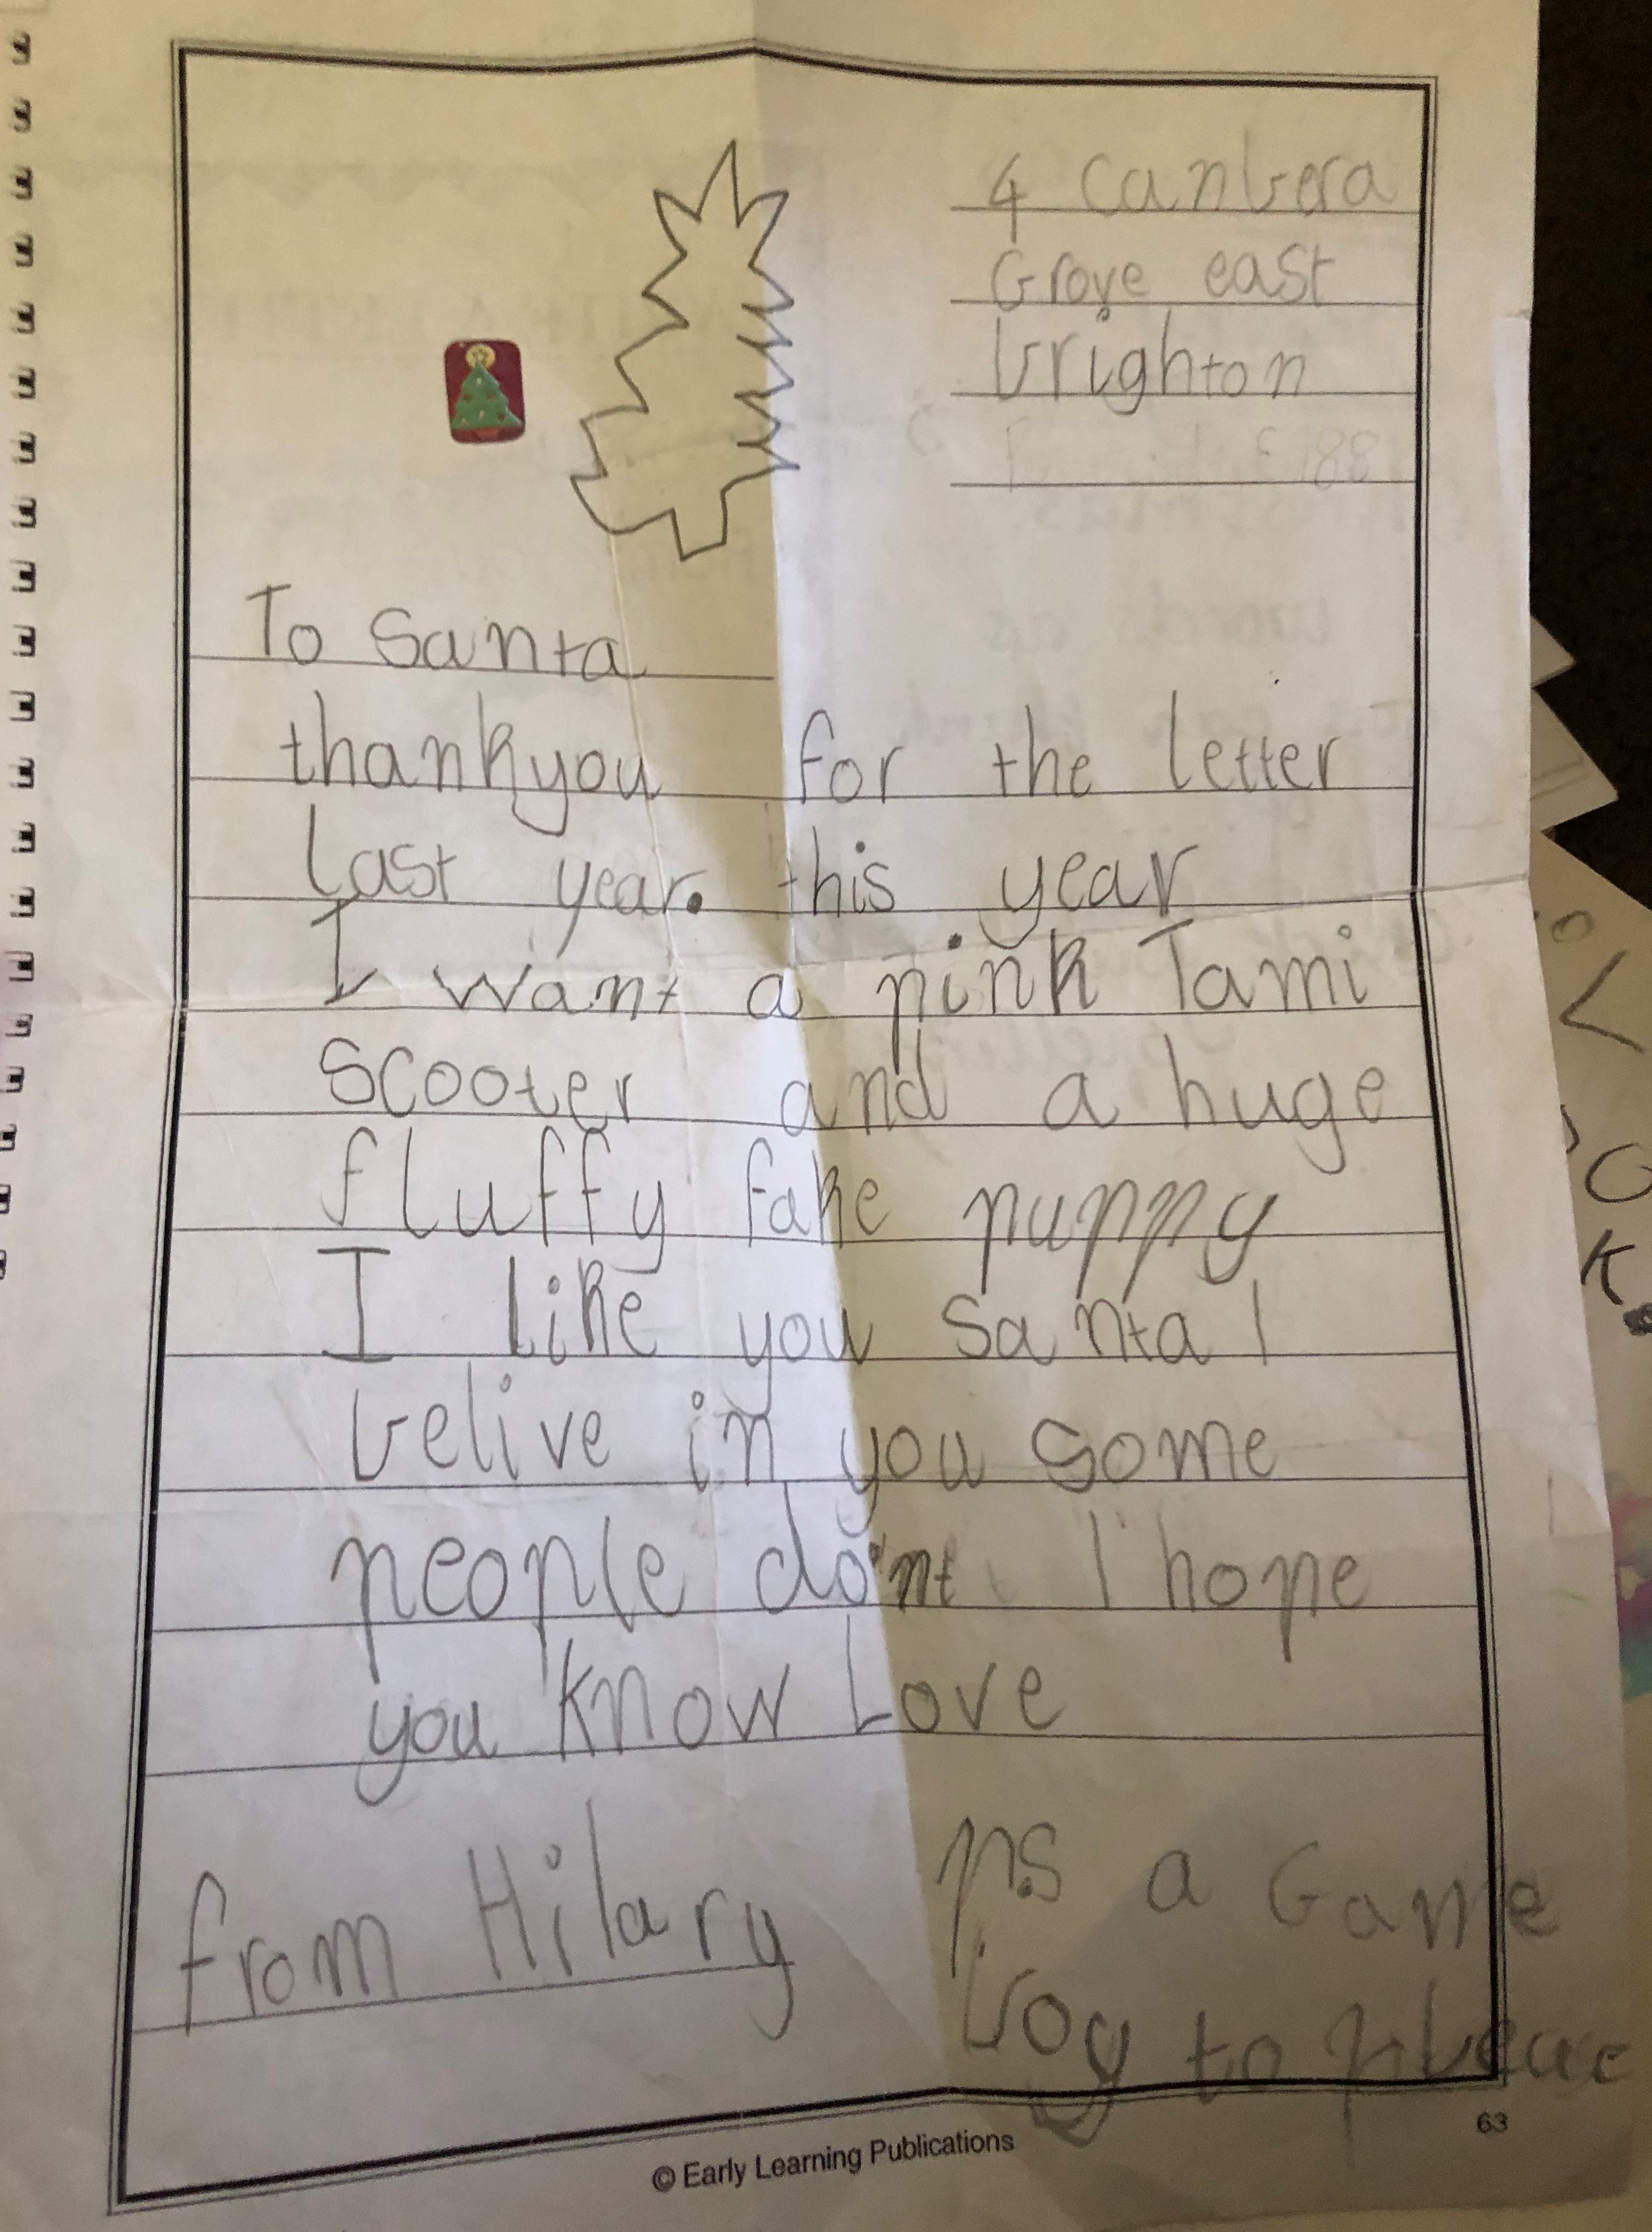 4 Canbera
Grove east
brighton
To Santa
thankyou for the letter
last year. this year
I want a pink Tami
scooter and a huge
fluffy fake puppy
I like you Santa I
belive in you some
people do'nt I hope
you know Love
from Hilary
ps a Game
boy to please
© Early Learning Publications
63